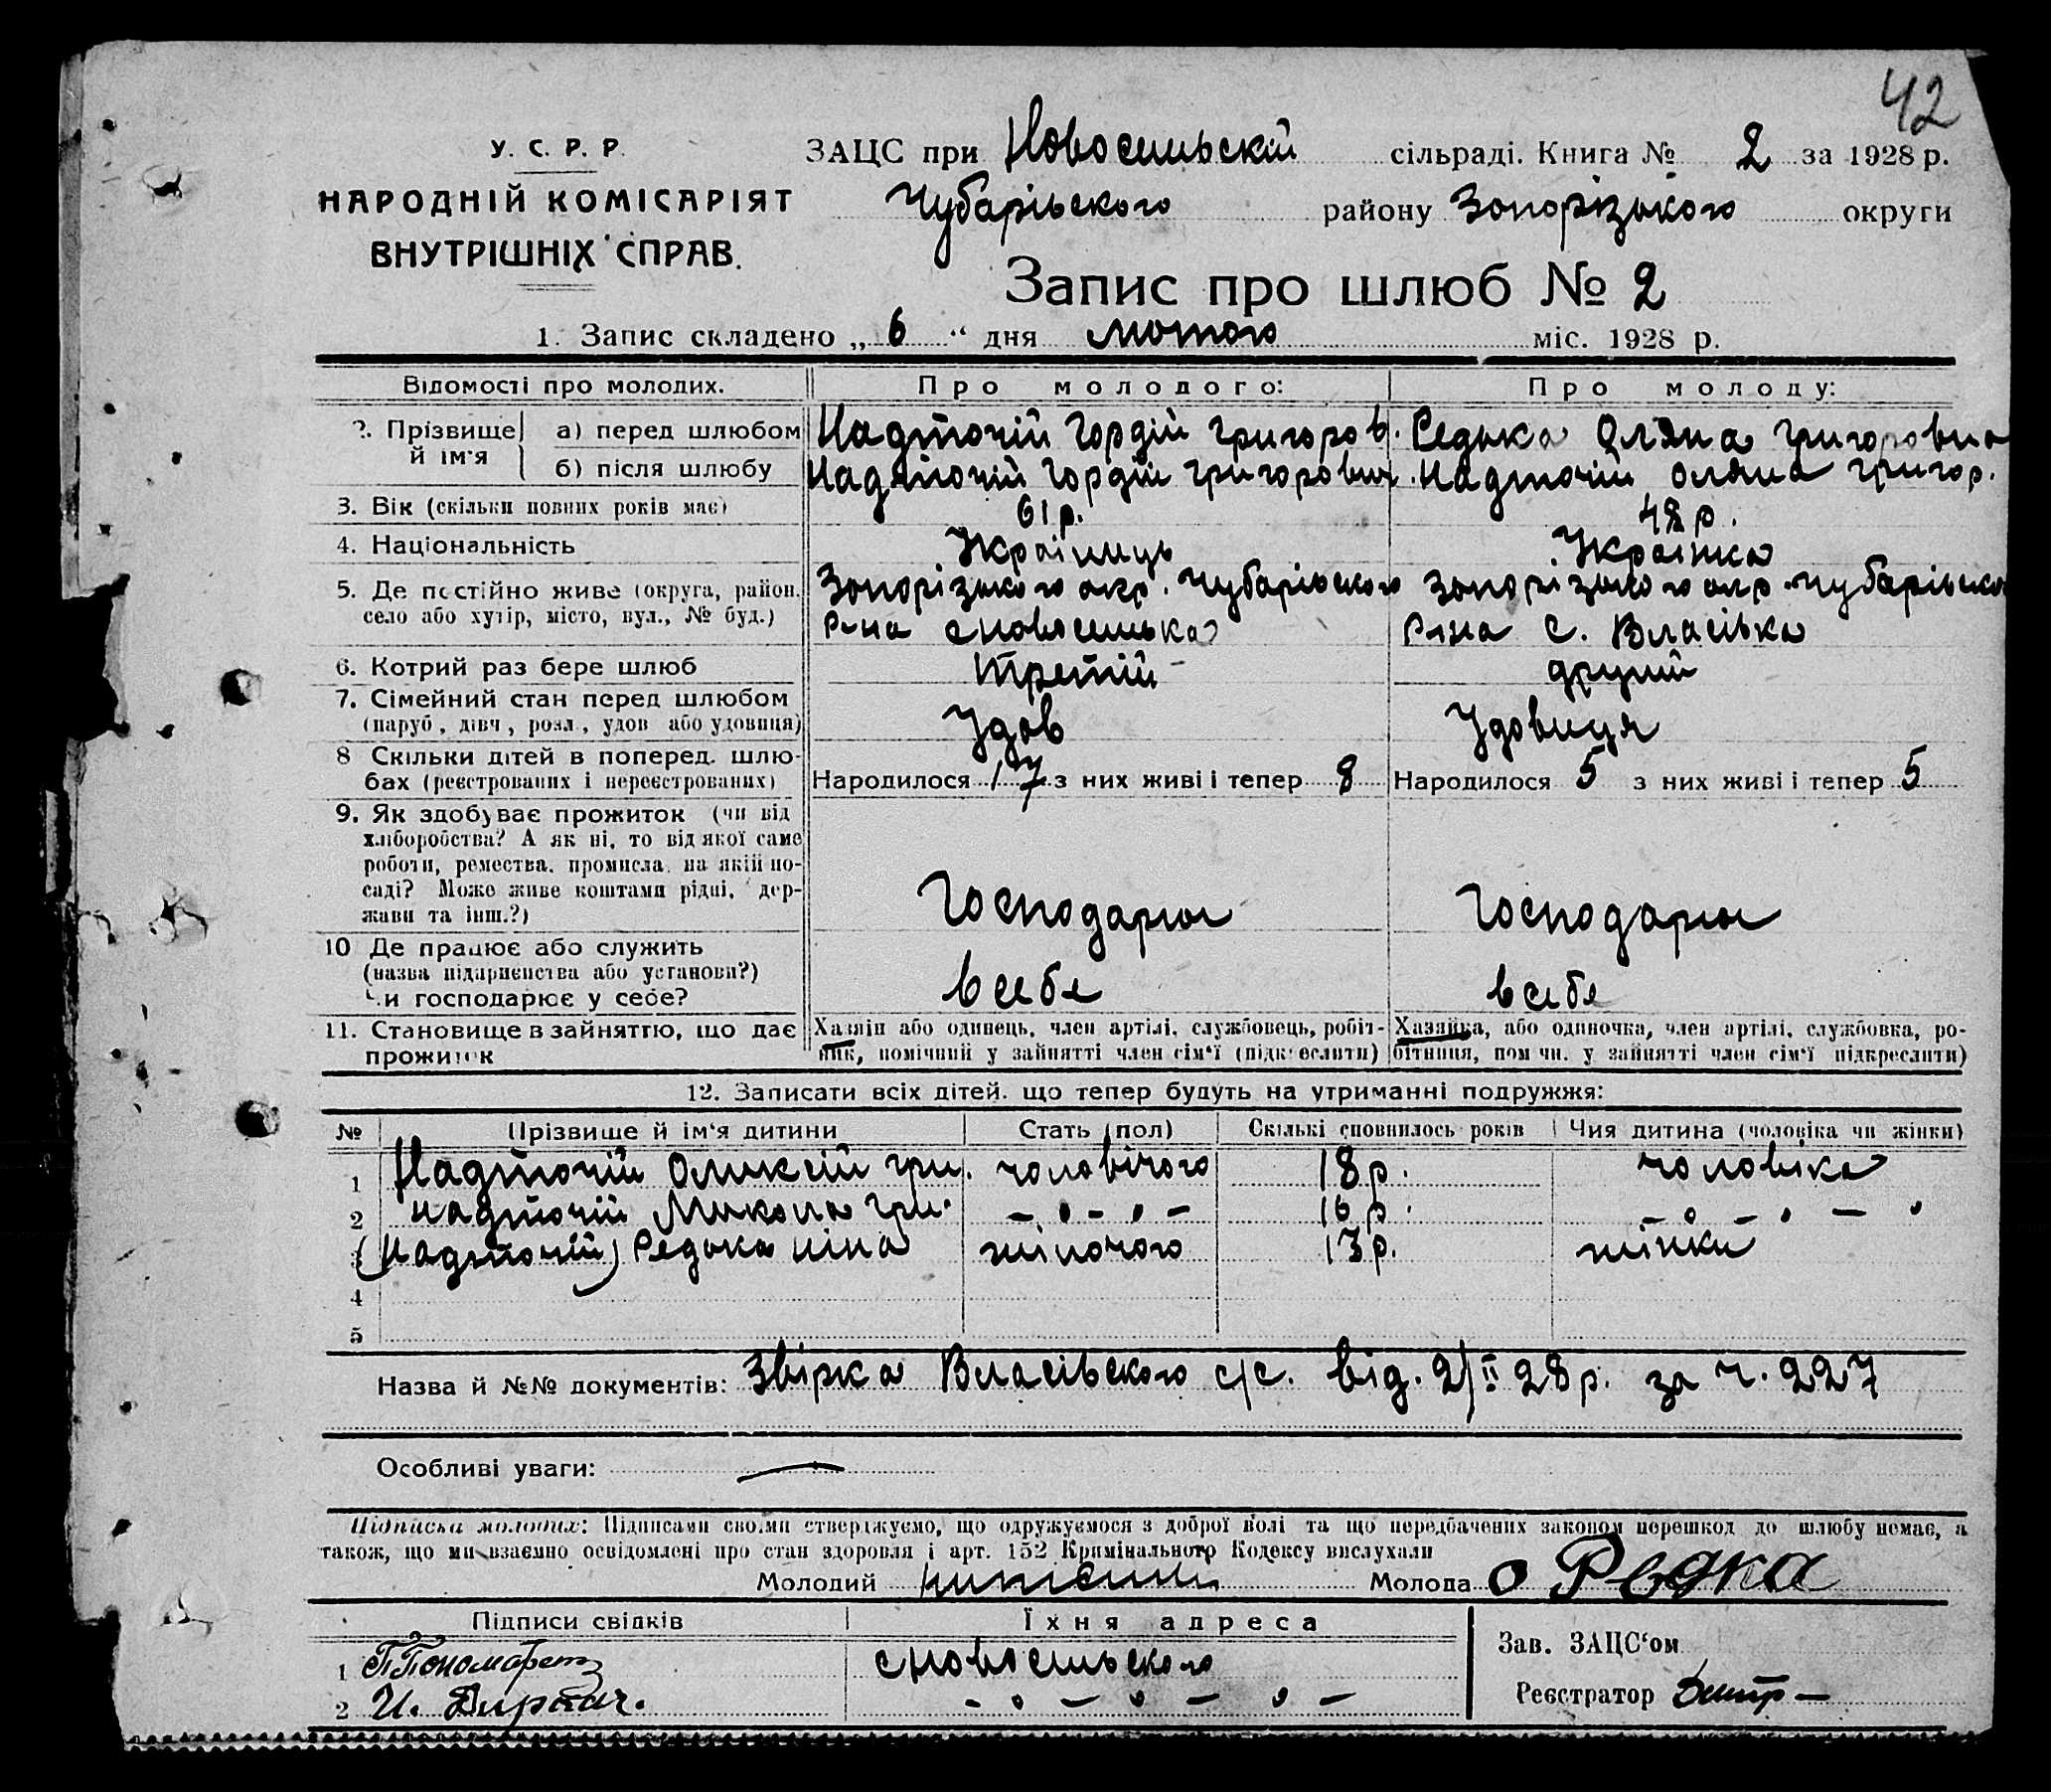 42
У. С. Р. Р.
НАРОДНІЙ КОМІСАРІЯТ
ВНУТРІШНІХ СПРАВ.
ЗАЦС при Новосельскій сільраді. Книга № 2 за 1928 р.
Чубарівського району Запорізького округи
Запис про шлюб № 2
1. Запис складено „ 6 “ дня лютого міс. 1928 р.
Відомості про молодих. Про молодого: Про молоду:
2. Прізвище й ім'я а) перед шлюбом Надточій Гордій Григоров. Редька Оляна Григоровна
б) після шлюбу Надточій Гордій Григорович. Надточій Оляна Григор.
3. Вік (скільки повних років має) 61 р. 48 р.
4. Національність Українець Українка
5. Де постійно живе (округа, район, Запорізького окр. Чубарівського Запорізького окр. Чубарівсько
село або хутір, місто, вул., № буд.) Р-на с. Власівка
6. Котрий раз бере шлюб третій другий
7. Сімейний стан перед шлюбом
(паруб., дівч., розл., удов або удовиця) Удов Удовиця
8 Скільки дітей в поперед. шлю-
бах (реєстрованих і нереєстрованих) Народилося 17 з них живі і тепер 8 Народилося 5 з них живі і тепер 5
9. Як здобуває прожиток (чи від
хліборобства? А як ні, то від якої саме
роботи, ремества, промисла, на якій по-
саді? Може живе коштами рідні, дер-
жави та інш.?) Господарює Господарює
10 Де працює або служить
(назва підприємства або установи?)
Чи господарює у себе? в себе в себе
11. Становище в зайняттю, що дає Хазяїн або одинець, член артілі, службовець, робіт- Хазяйка, або одиночка, член артілі, службовка, ро-
прожиток ник, помічний у зайнятті член сім'ї (підкреслити) бітниця, помічн. у зайнятті член сім'ї підкреслити)
12. Записати всіх дітей, що тепер будуть на утриманні подружжя:
№ Прізвище й ім'я дитини Стать (пол) Скількі сповнилось років Чия дитина (чоловіка чи жінки)
1 Надточій Олексій Гри. чоловічого 18 р. чоловіка
2 Надточій Микола Гри. – „ – „ – 16 р. – „ – „ – „
3 (Надточій) Редька Ніна жіночого 13 р. жінки
4
5
Назва й №№ документів: Звірка Власівського с/с. від. 2/ІІ 28 р. за ч. 227
Особливі уваги: —
Підписка молодих: Підписами своїми стверджуємо, що одружуємося з доброї волі та що передбачених законом перешкод до шлюбу немає, а
також, що ми взаємно освідомлені про стан здоровля і арт. 152 Кримінального Кодексу вислухали
Молодий Молода О Редка
Підписи свідків Їхня адреса
Зав. ЗАЦС'ом
1 с Новосельского
2 – „ – „ – „ –
Реєстратор